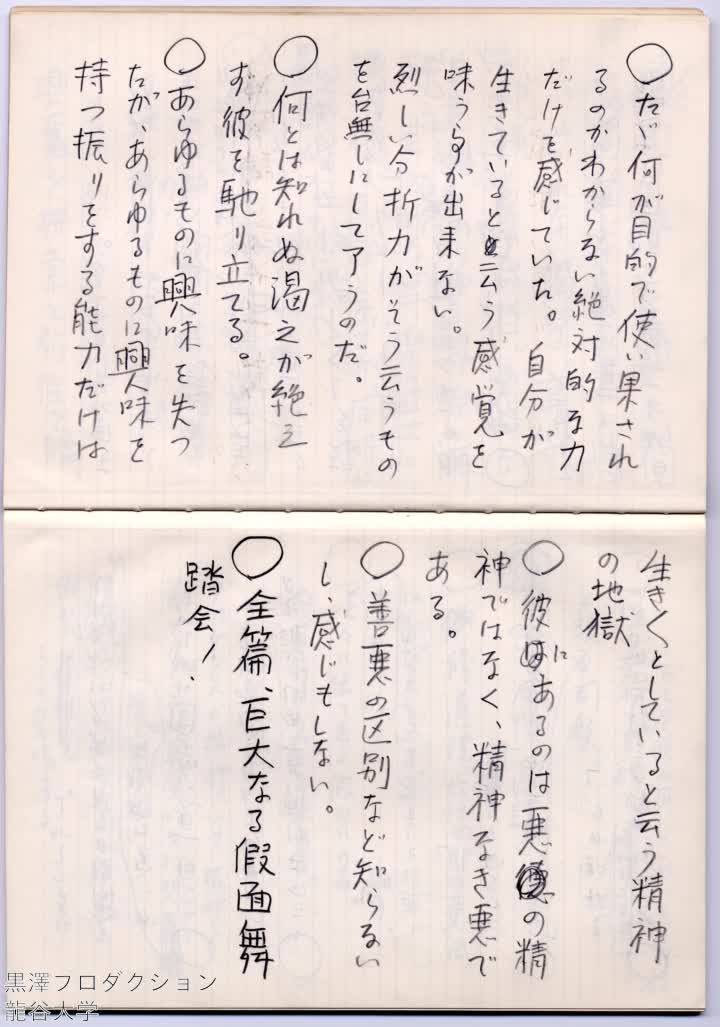 ○たゞ何が目的で使い果され
るのかわからない絶対的な力
だけを感じていた。自分が
生きていると云う感覚を
味う事が出来ない。
烈しい分析力がそう云うもの
を台無しにして了うのだ。
○何とは知れぬ渇えが絶え
ず彼を馳り立てる。
○あらゆるものに興味を失っ
たが、あらゆるものに興味を
持つ振りをする能力だけは
生き〱としていると云う精神
の地獄
○彼にあるのは悪の精
神ではなく、精神なき悪で
ある。
○善悪の区別など知らない
し、感じもしない。
○全篇、巨大なる假面舞
踏会!
黒澤プロダクション
龍谷大学